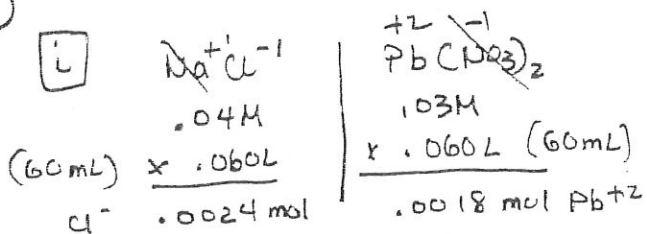 i Na⁺¹Cl⁻¹
.04M
(60mL) x .060L
Cl⁻ .0024 mol
+2 -1
Pb(NO₃)₂
.03M
x .060L (60mL)
.0018 mol Pb+2